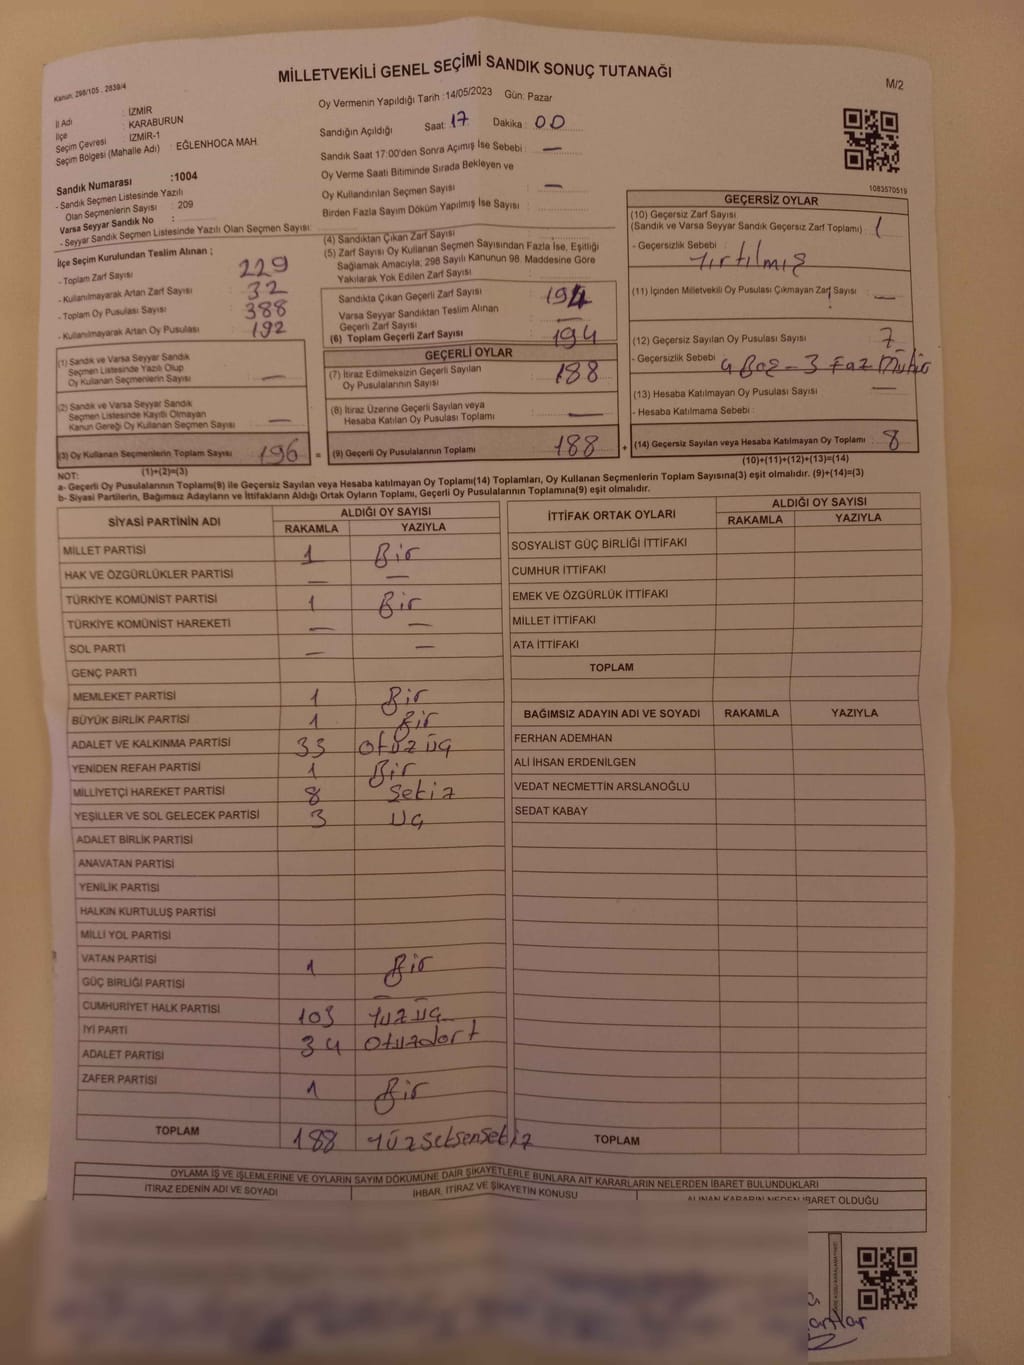 Kanun: 298/105 . 2839/4
MİLLETVEKİLİ GENEL SEÇİMİ SANDIK SONUÇ TUTANAĞI
M/2
İl Adı : İZMİR
İlçe : KARABURUN
Seçim Çevresi : İZMİR-1
Seçim Bölgesi (Mahalle Adı) : EĞLENHOCA MAH.
Sandık Numarası :1004
- Sandık Seçmen Listesinde Yazılı
Olan Seçmenlerin Sayısı : 209
Varsa Seyyar Sandık No :
- Seyyar Sandık Seçmen Listesinde Yazılı Olan Seçmen Sayısı:
Oy Vermenin Yapıldığı Tarih :14/05/2023 Gün: Pazar
Sandığın Açıldığı Saat: 17 Dakika : 00
Sandık Saat 17:00'den Sonra Açımış İse Sebebi : —
Oy Verme Saati Bitiminde Sırada Bekleyen ve
Oy Kullandırılan Seçmen Sayısı : —
Birden Fazla Sayım Döküm Yapılmış İse Sayısı :
1083570519
İlçe Seçim Kurulundan Teslim Alınan ;
- Toplam Zarf Sayısı : 229
- Kullanılmayarak Artan Zarf Sayısı : 32
- Toplam Oy Pusulası Sayısı : 388
- Kullanılmayarak Artan Oy Pusulası : 192
(1) Sandık ve Varsa Seyyar Sandık
Seçmen Listesinde Yazılı Olup
Oy Kullanan Seçmenlerin Sayısı : —
(2) Sandık ve Varsa Seyyar Sandık
Seçmen Listesinde Kayıtlı Olmayan
Kanun Gereği Oy Kullanan Seçmen Sayısı : —
(3) Oy Kullanan Seçmenlerin Toplam Sayısı : 196 =
(1)+(2)=(3)
(4) Sandıktan Çıkan Zarf Sayısı :
(5) Zarf Sayısı Oy Kullanan Seçmen Sayısından Fazla İse, Eşitliği
Sağlamak Amacıyla, 298 Sayılı Kanunun 98. Maddesine Göre
Yakılarak Yok Edilen Zarf Sayısı :
Sandıkta Çıkan Geçerli Zarf Sayısı : 194
Varsa Seyyar Sandıktan Teslim Alınan
Geçerli Zarf Sayısı : —
(6) Toplam Geçerli Zarf Sayısı : 194
GEÇERLİ OYLAR
(7) İtiraz Edilmeksizin Geçerli Sayılan
Oy Pusulalarının Sayısı : 188
(8) İtiraz Üzerine Geçerli Sayılan veya
Hesaba Katılan Oy Pusulası Toplamı : —
(9) Geçerli Oy Pusulalarının Toplamı : 188 +
GEÇERSİZ OYLAR
(10) Geçersiz Zarf Sayısı
(Sandık ve Varsa Seyyar Sandık Geçersiz Zarf Toplamı) : 1
- Geçersizlik Sebebi : Yırtılmış
(11) İçinden Milletvekili Oy Pusulası Çıkmayan Zarf Sayısı : —
(12) Geçersiz Sayılan Oy Pusulası Sayısı : 7
- Geçersizlik Sebebi : 4 Boş - 3 Faz Mühür
(13) Hesaba Katılmayan Oy Pusulası Sayısı : —
- Hesaba Katılmama Sebebi :
(14) Geçersiz Sayılan veya Hesaba Katılmayan Oy Toplamı : 8
(10)+(11)+(12)+(13)=(14)
NOT:
a- Geçerli Oy Pusulalarının Toplamı(9) ile Geçersiz Sayılan veya Hesaba katılmayan Oy Toplamı(14) Toplamları, Oy Kullanan Seçmenlerin Toplam Sayısına(3) eşit olmalıdır. (9)+(14)=(3)
b- Siyasi Partilerin, Bağımsız Adayların ve İttifakların Aldığı Ortak Oyların Toplamı, Geçerli Oy Pusulalarının Toplamına(9) eşit olmalıdır.
SİYASİ PARTİNİN ADI ALDIĞI OY SAYISI
RAKAMLA YAZIYLA
MİLLET PARTİSİ 1 Bir
HAK VE ÖZGÜRLÜKLER PARTİSİ — —
TÜRKİYE KOMÜNİST PARTİSİ 1 Bir
TÜRKİYE KOMÜNİST HAREKETİ — —
SOL PARTİ — —
GENÇ PARTİ
MEMLEKET PARTİSİ 1 Bir
BÜYÜK BİRLİK PARTİSİ 1 Bir
ADALET VE KALKINMA PARTİSİ 33 Otuz üç
YENİDEN REFAH PARTİSİ 1 Bir
MİLLİYETÇİ HAREKET PARTİSİ 8 Sekiz
YEŞİLLER VE SOL GELECEK PARTİSİ 3 Üç
ADALET BİRLİK PARTİSİ
ANAVATAN PARTİSİ
YENİLİK PARTİSİ
HALKIN KURTULUŞ PARTİSİ
MİLLİ YOL PARTİSİ
VATAN PARTİSİ 1 Bir
GÜÇ BİRLİĞİ PARTİSİ —
CUMHURİYET HALK PARTİSİ 103 Yüzüç
İYİ PARTİ 34 Otuzdört
ADALET PARTİSİ
ZAFER PARTİSİ 1 Bir
TOPLAM 188 Yüzseksensekiz
İTTİFAK ORTAK OYLARI ALDIĞI OY SAYISI
RAKAMLA YAZIYLA
SOSYALİST GÜÇ BİRLİĞİ İTTİFAKI
CUMHUR İTTİFAKI
EMEK VE ÖZGÜRLÜK İTTİFAKI
MİLLET İTTİFAKI
ATA İTTİFAKI
TOPLAM
BAĞIMSIZ ADAYIN ADI VE SOYADI RAKAMLA YAZIYLA
FERHAN ADEMHAN
ALİ İHSAN ERDENİLGEN
VEDAT NECMETTİN ARSLANOĞLU
SEDAT KABAY
TOPLAM
OYLAMA İŞ VE İŞLEMLERİNE VE OYLARIN SAYIM DÖKÜMÜNE DAİR ŞİKAYETLERLE BUNLARA AİT KARARLARIN NELERDEN İBARET BULUNDUKLARI
İTİRAZ EDENİN ADI VE SOYADI İHBAR, İTİRAZ VE ŞİKAYETİN KONUSU ALINAN KARARIN NEDEN İBARET OLDUĞU